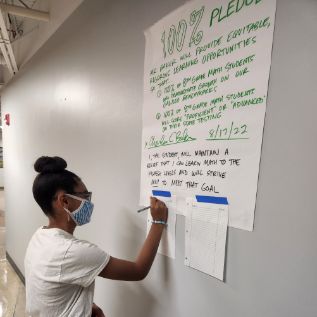 100% PLEDGE
MR. BAKER WILL PROVIDE EQUITABLE,
RIGOROUS LEARNING OPPORTUNITIES
SO THAT
① 100% OF 8TH GRADE MATH STUDENTS
GROWTH ON OUR
BENCHMARKS
② 100% OF 8TH GRADE MATH STUDENTS
WILL SCORE "PROFICIENT" OR "ADVANCED"
ON THEIR STATE TESTING
8/17/22
I, THE STUDENT, WILL MAINTAIN A
BELIEF THAT I CAN LEARN MATH TO THE
HIGHEST LEVELS AND WILL STRIVE
TO MEET THAT GOAL